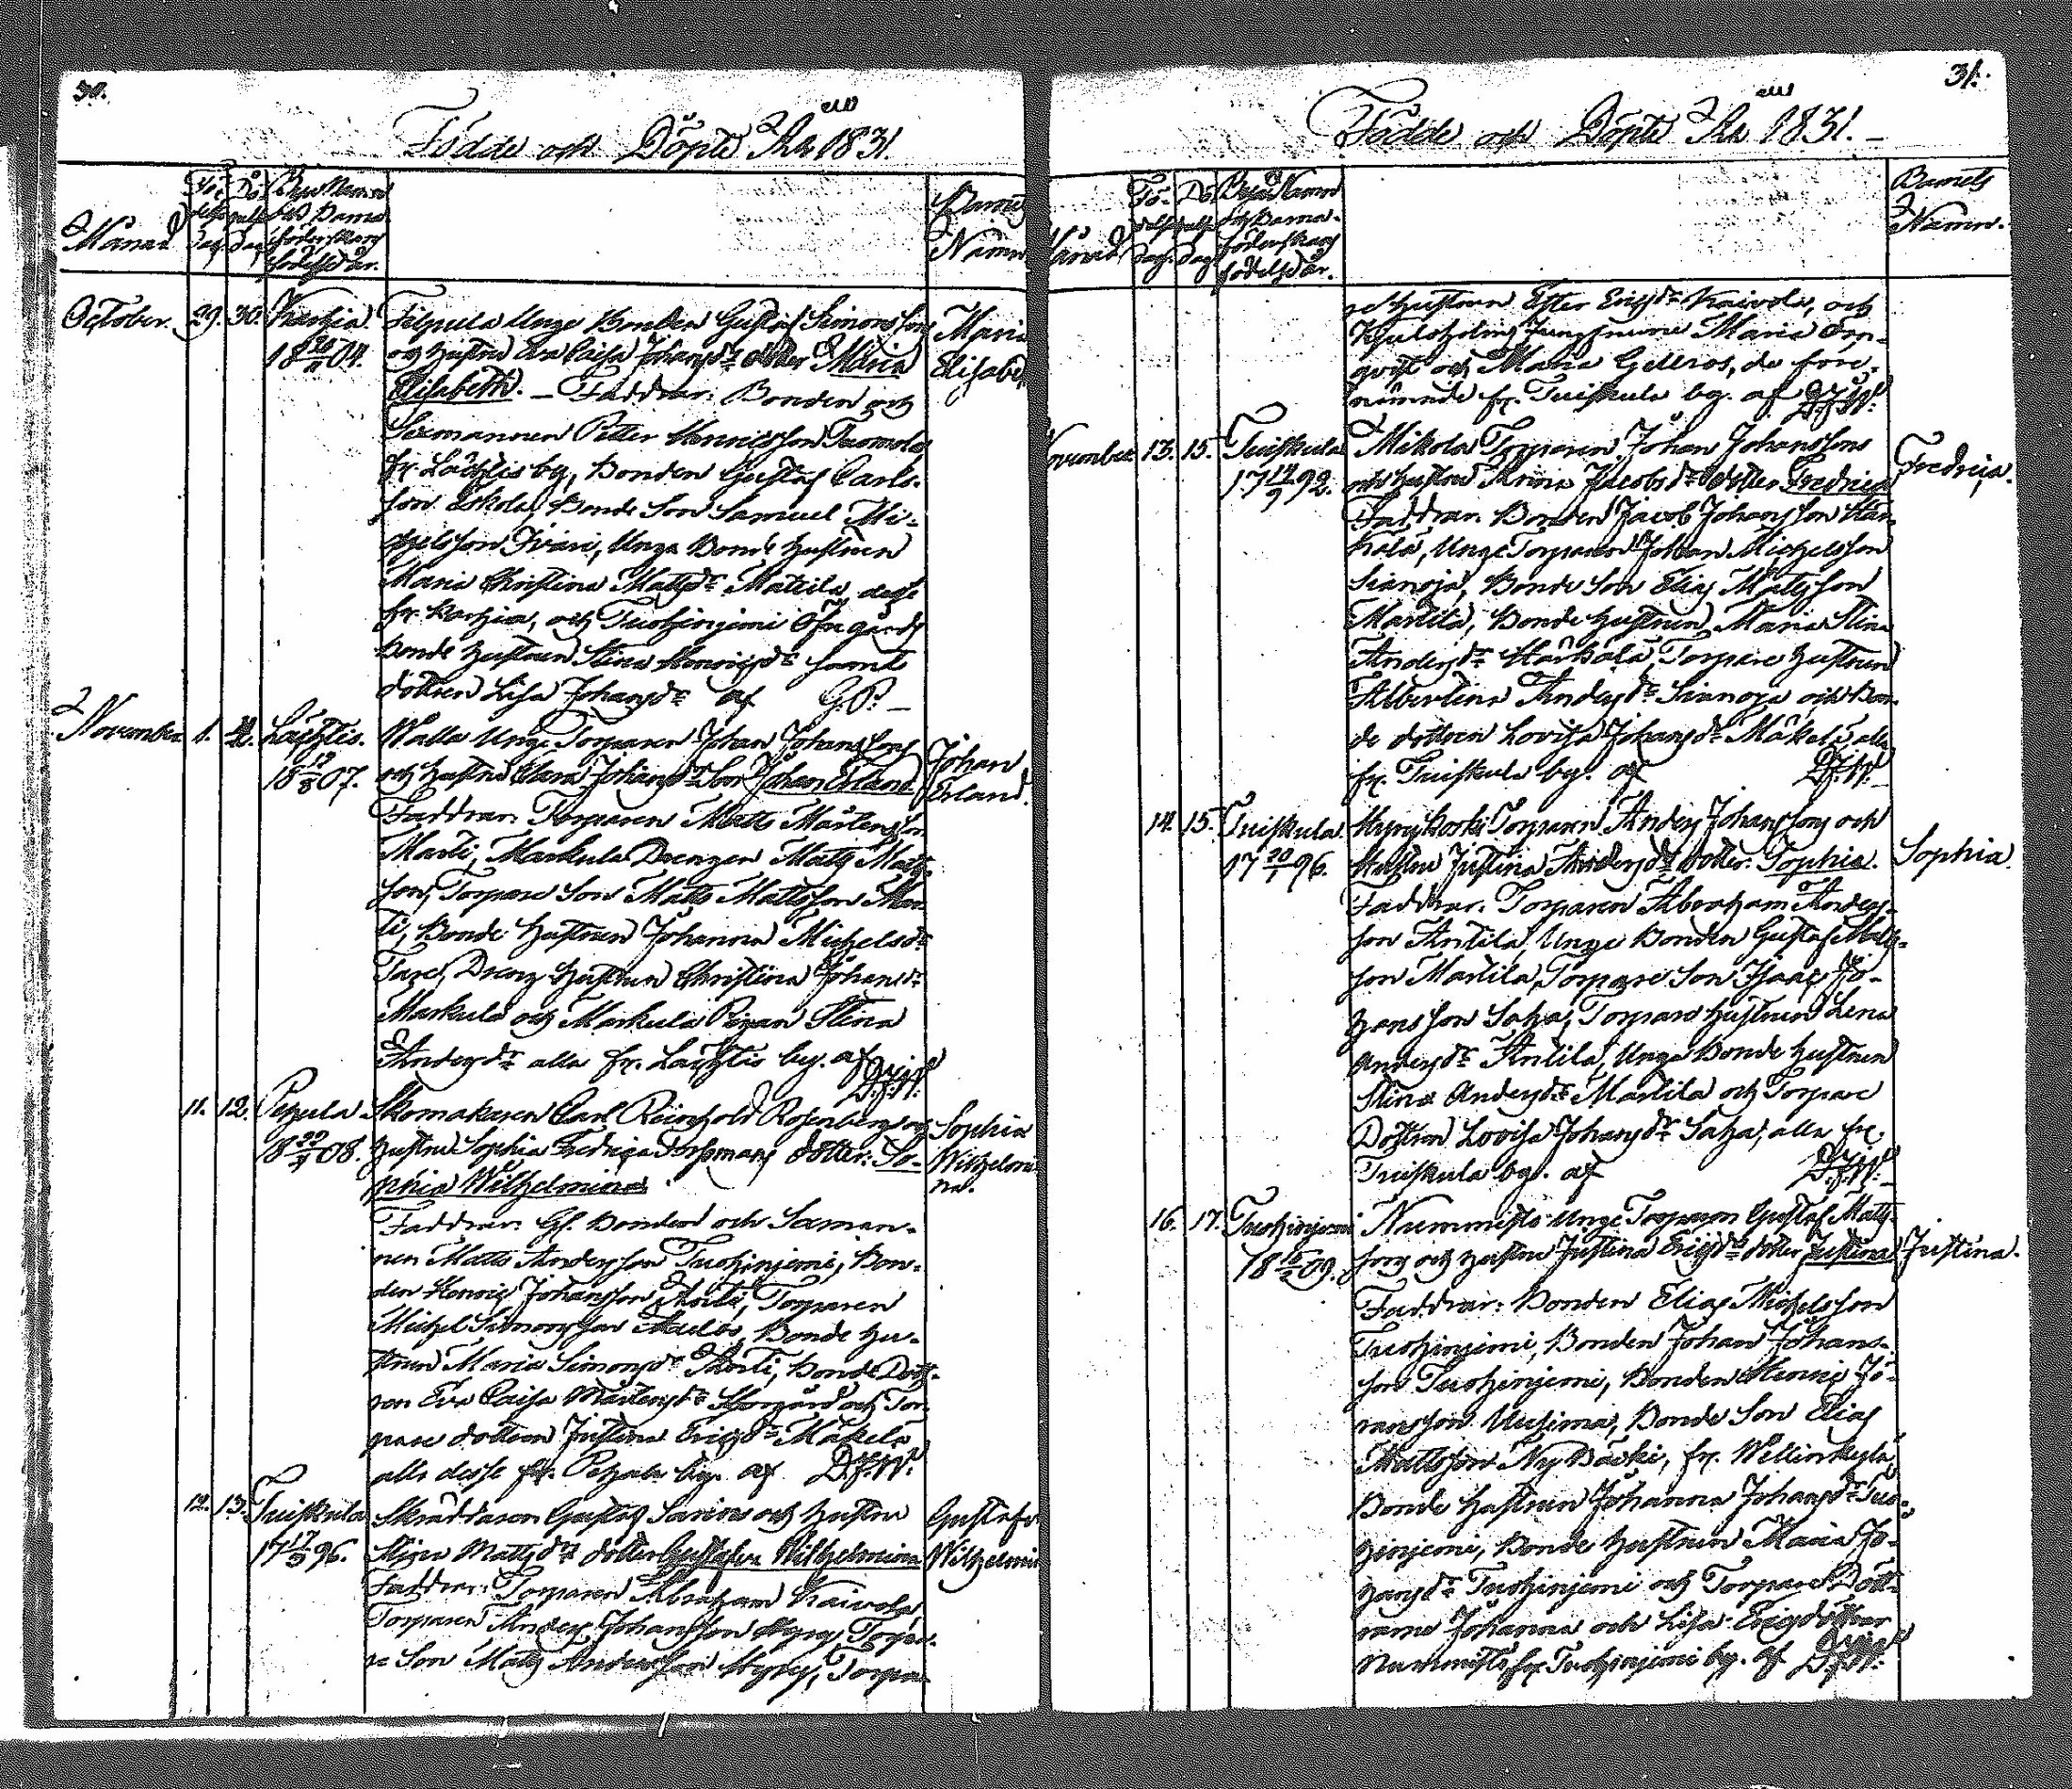 30.
Födde och Döpte Åhr 1831.
Månad
Fö-
delse
dag
Dö-
pelse
dag
Byars Namn
och Barna-
föderskans
födelse år.
Barnets
Namn
October. 29. 30. Karhia. 18 04.
Filpula Unge Bonden Gustaf Simonssons
och hustru Eva Caisa Johansdr dotter Maria
Elisabeth. — Faddrar: Bonden och
Sexmannen Petter Henricsson Tuomola
fr. Lächtis by, Bonden Gustaf Carls-
son Eskola, Bonde Son Samuel Mi-
chelsson Iivari, Unga Bonde hustrun
Maria Christina Mattsdr Mattila, desse
fr. Karhia, och Tuohinjemi Öfvergårds
Bonde hustrun Stina Henricsdr samt
dottren Lisa Johansdr af G.P. —
Maria
Elisabet
November 1. 2. Lächtis. 18 19/8 07.
Walla Unge Torparen Johan Johanssons
och hustru Clara Johansdr Son Johan Erland.
Faddrar: Torparen Matts Mårtensson
Marti, Markula Drengen Matts Matts-
son, Torpare Son Matts Mattsson Mar-
ti, Bonde hustrun Johanna Michelsdr
Dreng hustrun Christina Johansdr
Markula och Markula Pigan Stina
Andersdr alla fr. Lächtis by. af
D.J.W.
Johan
Erland.
11. 12. Pepula 18 08.
Skomakaren Carl Reinhold Rosenbergs och
hustru Sophia Fredrica dotter: So-
phia Wilhelmina.
Faddrar: Gl. Bonden och Sexman-
nen Matts Andersson Tuohinjemi, Bon-
den Henric Johansson Anti, Torparen
Michel Simonsson Bonde hu-
strun Maria Simonsdr Anti, Bonde Dott-
ren Eva Caisa Mårtensdr Storgård och Tor-
pare dottren Justina Ericsdr Mäkelä
alla desse fr. by. af D.J.W.
Sophia
Wilhelmi-
na.
12. 13. Tuiskula 17 96.
Skräddaren Gustaf och hustru
Stina Mattsdr dotter Gustafva Wilhelmina
Faddrar: Torparen Abraham Kaivola,
Torparen Anders Johansson Myry, Torpa-
re Son Matts Andersson Myry, Torpa-
Gustafva
Wilhelmin
31.
Födde och Döpte Åhr 1831. —
Månad
Fö-
delse
dag.
Dö-
pelse
dag
Byars Namn
och Barna-
föderskans
födelse år.
Barnets
Namn.
re hustrun Ester Ericsdr Kaivola, och
Jungfrurne Maria
och Maria de före-
nämnde fr. Tuiskula by. af D.J.W.
November 13. 15. Tuiskula 17 14/9 92.
Mikola Torparen Johan Johanssons
och hustru Anna Jacobsdr dotter Fredrica
Faddrar: Bonden Jacob Johansson Här-
kälä, Unge Torparen Johan Michelsson
Sianoja, Bonde Son Elias Mattsson
Martila, Bonde hustrun Maria Stina
Andersdr Härkälä, Torpare hustrun
Albertina Andersdr Sianoja och Bon-
de dottren Lovisa Johansdr Mäkelä, alla
fr. Tuiskula by. af D.J.W.
Fredrica.
14. 15. Tuiskula. 17 20/1 96.
Myrykoski Torparen Anders Johanssons och
hustru Justina Andersdr dotter: Sophia.
Faddrar: Torparen Abraham Anders-
son Antila, Unge Bonden Gustaf Matts-
son Martila, Torpare Son Isaac Jo-
hansson Saha, Torpare hustrun Lena
Andersdr Antila, Unga Bonde hustrun
Stina Andersdr Martila och Torpare
Dottren Lovisa Johansdr Saha, alla fr.
Tuiskula by. af D.J.W.
Sophia.
16. 17. Tuohinjemi 18 09.
Nummisto Unge Torparen Gustaf Matts-
sons och hustru Justina Ericsdr dotter Justina
Faddrar: Bonden Elias Michelsson
Tuohinjemi, Bonden Johan Johans-
son Tuohinjemi, Bonden Henric Jo-
hansson Uusima, Bonde Son Elias
Mattsson Ny Backi, fr. Wellinkylä,
Bonde hustrun Johanna Johansdr Tuo-
hinjemi, Bonde hustrun Maria Jo-
hansdr Tuohinjemi och Torpare Dött-
rarne Johanna och Lisa Ericsdöttrar
Nummisto, fr. Tuohinjemi by. af D.J.W.
Justina.